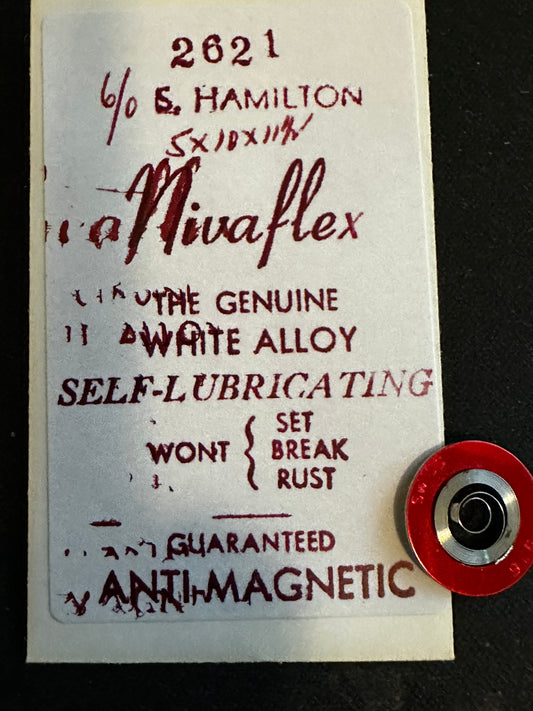 2621
6/0 S. HAMILTON
5X10X11½
Nivaflex
THE GENUINE
WHITE ALLOY
SELF-LUBRICATING
WONT { SET
BREAK
RUST
GUARANTEED
ANTI-MAGNETIC
SW